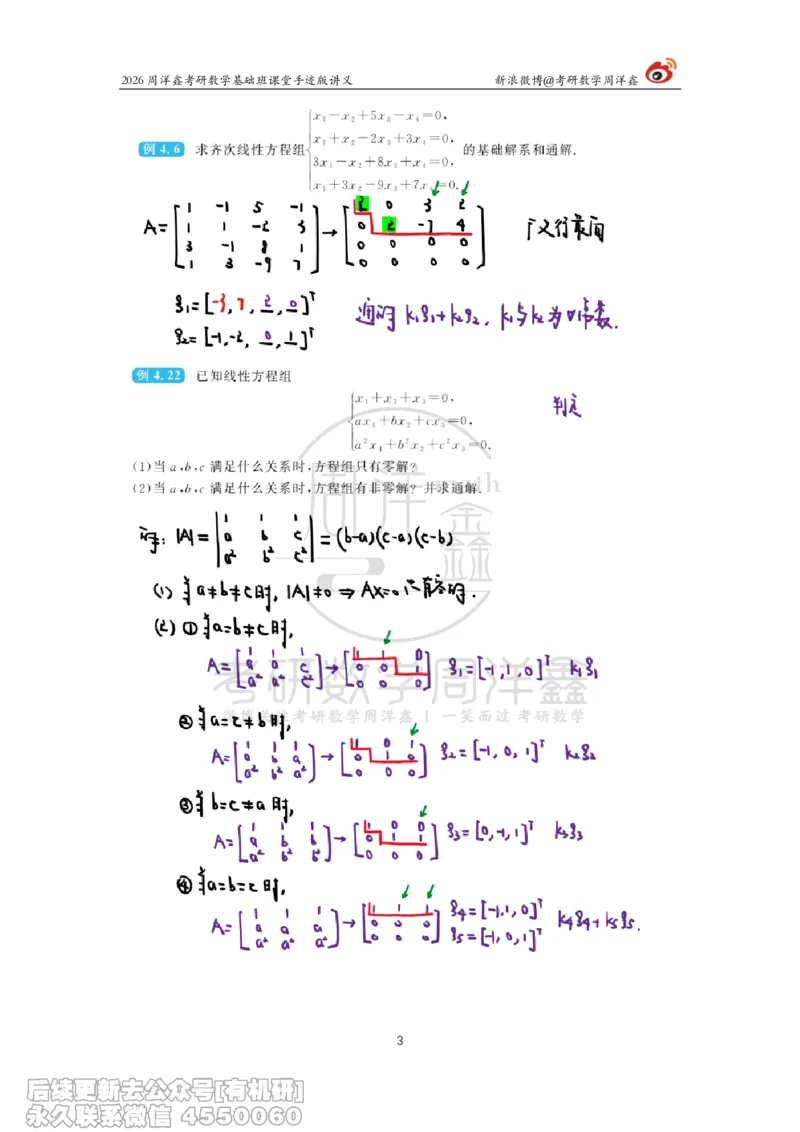 2026 周洋鑫考研数学基础班课堂手迹版讲义 新浪微博@考研数学周洋鑫
例 4.6 求齐次线性方程组 { x₁－x₂＋5x₃－x₄＝0, x₁＋x₂－2x₃＋3x₄＝0, 3x₁－x₂＋8x₃＋x₄＝0, x₁＋3x₂－9x₃＋7x₄＝0. 的基础解系和通解.
A= [1 -1 5 -1; 1 1 -2 3; 3 -1 8 1; 1 3 -9 7] → [2 0 3 2; 0 2 -7 4; 0 0 0 0; 0 0 0 0] 「又行最简
ξ₁=[-3, 7, 2, 0]ᵀ
ξ₂=[-1, -2, 0, 1]ᵀ
通解 k₁ξ₁+k₂ξ₂, k₁与k₂为∀常数.
例 4.22 已知线性方程组
x₁＋x₂＋x₃＝0,
ax₁＋bx₂＋cx₃＝0, 判定
a²x₁＋b²x₂＋c²x₃＝0.
(1)当 a,b,c 满足什么关系时,方程组只有零解?
(2)当 a,b,c 满足什么关系时,方程组有非零解? 并求通解.
解: |A|= |1 1 1; a b c; a² b² c²| =(b-a)(c-a)(c-b)
(1) 当a≠b≠c时, |A|≠0 ⇒ Ax=0只有零解.
(2) ① 当a=b≠c时,
A= [1 1 1; a a c; a² a² c²] → [1 1 0; 0 0 1; 0 0 0] ξ₁=[-1, 1, 0]ᵀ k₁ξ₁
② 当a=c≠b时,
A= [1 1 1; a b a; a² b² a²] → [1 0 1; 0 1 0; 0 0 0] ξ₂=[-1, 0, 1]ᵀ k₂ξ₂
③ 当b=c≠a时,
A= [1 1 1; a b b; a² b² b²] → [1 0 0; 0 1 1; 0 0 0] ξ₃=[0, -1, 1]ᵀ k₃ξ₃
④ 当a=b=c时,
A= [1 1 1; a a a; a² a² a²] → [1 1 1; 0 0 0; 0 0 0] ξ₄=[-1, 1, 0]ᵀ k₄ξ₄+k₅ξ₅.
ξ₅=[-1, 0, 1]ᵀ
周洋鑫
math
考研数学周洋鑫
考研数学周洋鑫 | 一笑而过 考研数学
3
后续更新去公众号[有机研]
永久联系微信 4550060